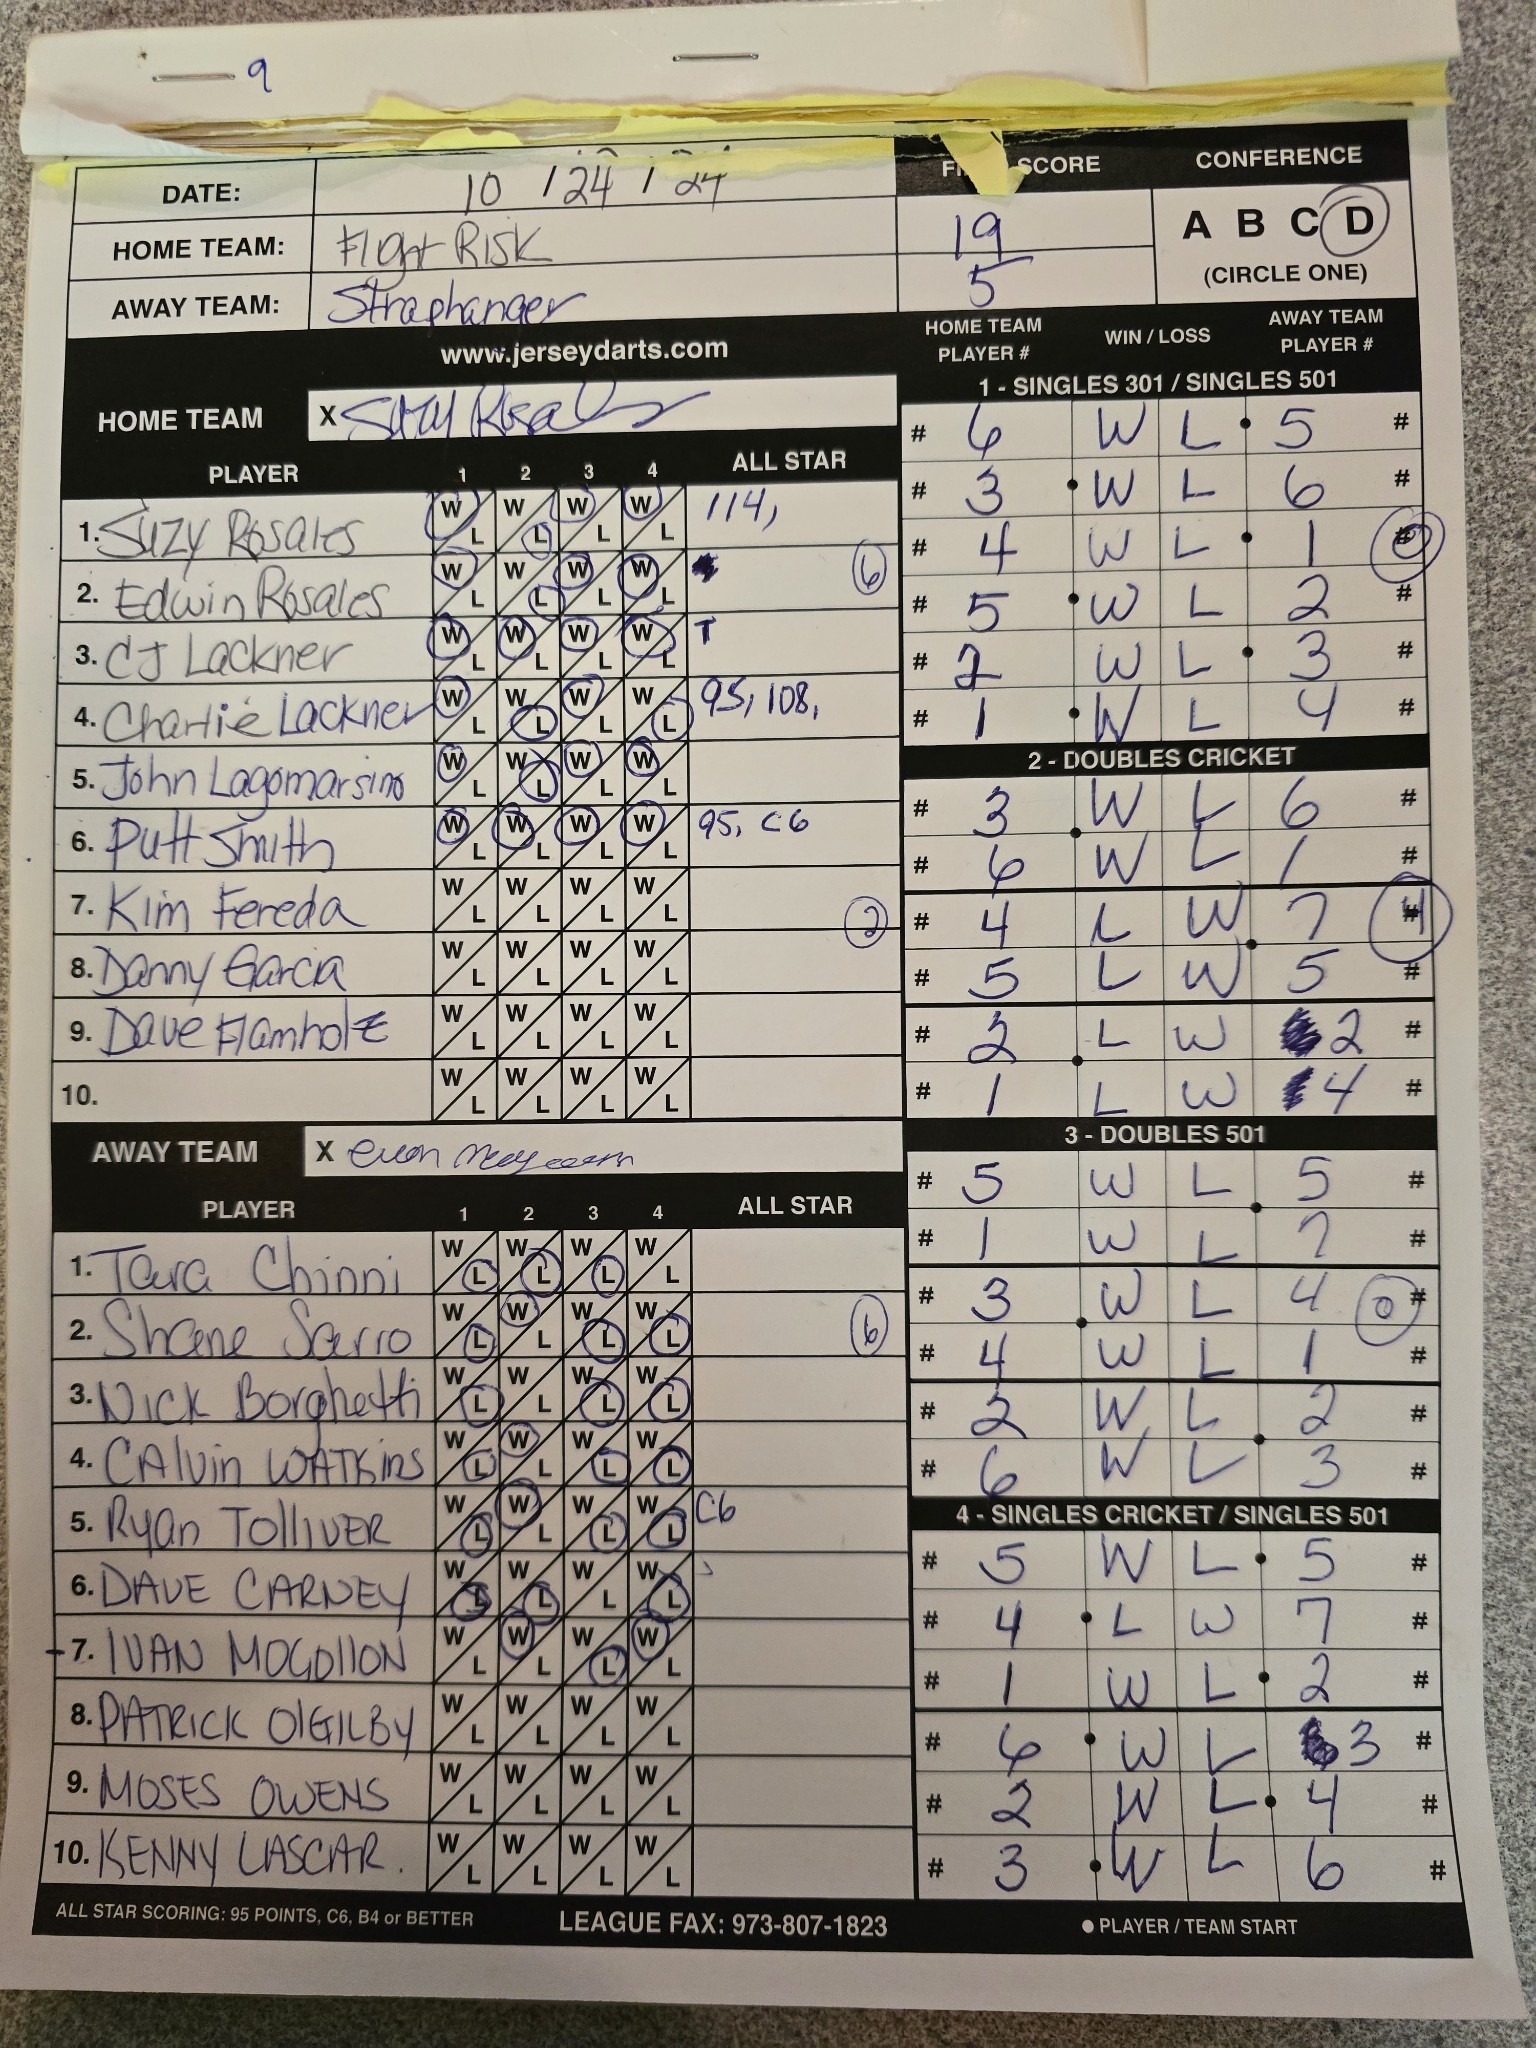 9
DATE: 10 / 24 / 24
HOME TEAM: Flght Risk
AWAY TEAM: Straphanger
SCORE
19
5
CONFERENCE
A B C D
(CIRCLE ONE)
www.jerseydarts.com
HOME TEAM X Suzy Rosales
PLAYER 1 2 3 4 ALL STAR
1. Suzy Rosales W L W L W L W L 114,
2. Edwin Rosales W L W L W L W L 6
3. CJ Lackner W L W L W L W L T
4. Charlie Lackner W L W L W L W L 95, 108,
5. John Lagomarsino W L W L W L W L
6. Putt Smith W L W L W L W L 95, C6
7. Kim Fereda W L W L W L W L 2
8. Danny Garcia W L W L W L W L
9. Dave Flamholz W L W L W L W L
10. W L W L W L W L
AWAY TEAM X
PLAYER 1 2 3 4 ALL STAR
1. Tara Chinni W L W L W L W L
2. Shane Sarro W L W L W L W L 6
3. Nick Borghetti W L W L W L W L
4. CAlvin WATKins W L W L W L W L
5. Ryan TOLLIVER W L W L W L W L C6
6. DAVE CARNEY W L W L W L W L
7. IVAN MOGOllON W L W L W L W L
8. PATRICK O'GILBY W L W L W L W L
9. MOSES OWENS W L W L W L W L
10. KENNY LASCAR. W L W L W L W L
ALL STAR SCORING: 95 POINTS, C6, B4 or BETTER
LEAGUE FAX: 973-807-1823
HOME TEAM PLAYER # WIN / LOSS AWAY TEAM PLAYER #
1 - SINGLES 301 / SINGLES 501
# 6 W L 5 #
# 3 W L 6 #
# 4 W L 1 # 0
# 5 W L 2 #
# 2 W L 3 #
# 1 W L 4 #
2 - DOUBLES CRICKET
# 3 W L 6 #
# 6 W L 1 #
# 4 L W 7 # 4
# 5 L W 5 #
# 2 L W 2 #
# 1 L W 4 #
3 - DOUBLES 501
# 5 W L 5 #
# 1 W L 7 #
# 3 W L 4 0 #
# 4 W L 1 #
# 2 W L 2 #
# 6 W L 3 #
4 - SINGLES CRICKET / SINGLES 501
# 5 W L 5 #
# 4 L W 7 #
# 1 W L 2 #
# 6 W L 3 #
# 2 W L 4 #
# 3 W L 6 #
● PLAYER / TEAM START